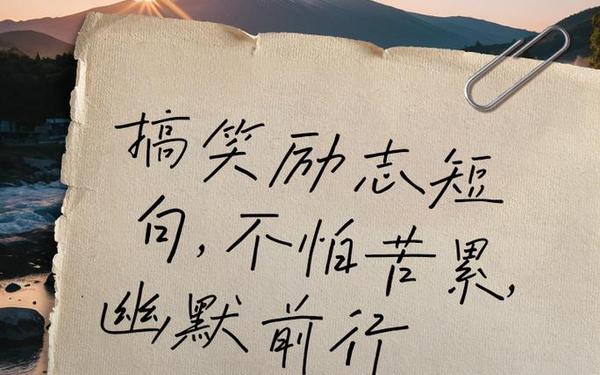 搞笑励志短
句,不怕苦累,
幽默前行